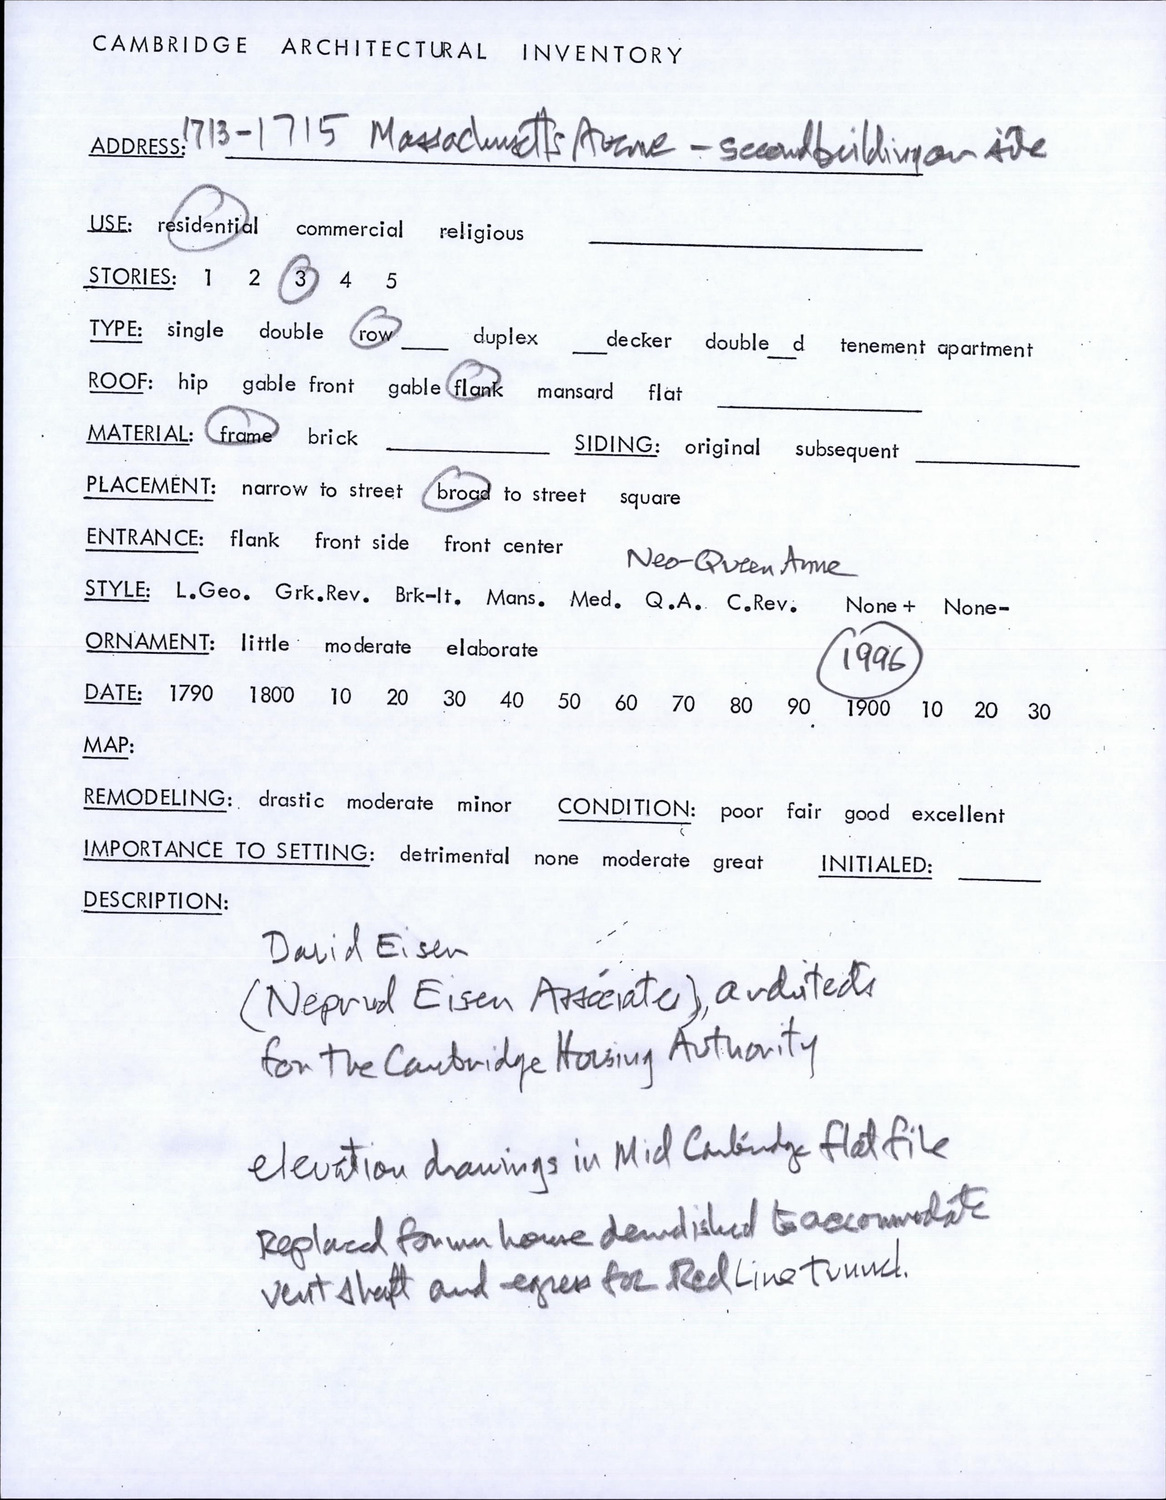 CAMBRIDGE ARCHITECTURAL INVENTORY
ADDRESS: 1713-1715 Massachusetts Avenue - second building on site
USE: residential commercial religious
STORIES: 1 2 3 4 5
TYPE: single double row ___ duplex ___decker double__d tenement apartment
ROOF: hip gable front gable flank mansard flat
MATERIAL: frame brick SIDING: original subsequent
PLACEMENT: narrow to street broad to street square
ENTRANCE: flank front side front center
Neo-Queen Anne
STYLE: L.Geo. Grk.Rev. Brk-It. Mans. Med. Q.A. C.Rev. None+ None-
ORNAMENT: little moderate elaborate
1996
DATE: 1790 1800 10 20 30 40 50 60 70 80 90 1900 10 20 30
MAP:
REMODELING: drastic moderate minor CONDITION: poor fair good excellent
IMPORTANCE TO SETTING: detrimental none moderate great INITIALED:
DESCRIPTION:
David Eisen
(Neprud Eisen Associates), architects
for the Cambridge Housing Authority
elevation drawings in Mid Cambridge flat file
Replaced former house demolished to accommodate
vent shaft and egress for Red Line tunnel.